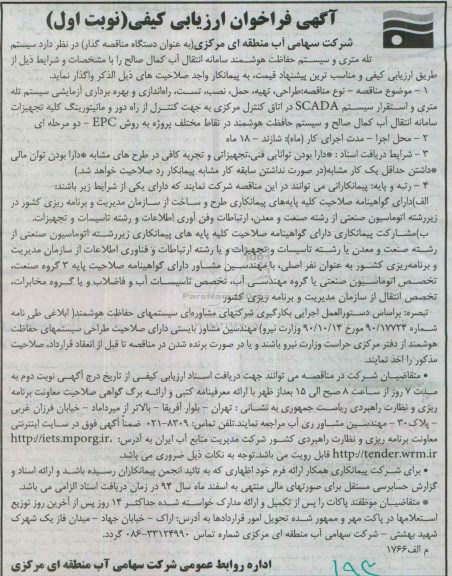 آگهی فراخوان ارزیابی کیفی(نوبت اول)
شرکت سهامی آب منطقه ای مرکزی(به عنوان دستگاه مناقصه گذار) در نظر دارد سیستم
تله متری و سیستم حفاظت هوشمند سامانه انتقال آب کمال صالح را با مشخصات و شرایط ذیل از
طریق ارزیابی کیفی و مناسب ترین پیشنهاد قیمت، به پیمانکار واجد صلاحیت های ذیل الذکر واگذار نماید.
۱ – موضوع مناقصه – نوع مناقصه:طراحی، تهیه، حمل، نصب، تست، راه‌اندازی و بهره برداری آزمایشی سیستم تله
متری و استقرار سیستم SCADA در اتاق کنترل مرکزی به جهت کنترل از راه دور و مانیتورینگ کلیه تجهیزات
سامانه انتقال آب کمال صالح و سیستم حفاظت هوشمند در نقاط مختلف پروژه به روش EPC – دو مرحله ای
۲ – محل اجرا – مدت اجرای کار (ماه): شازند – ۱۸ ماه
۳ – شرایط دریافت اسناد : *دارا بودن توانایی فنی،تجهیزاتی و تجربه کافی در طرح های مشابه *دارا بودن توان مالی
*داشتن حداقل یک کار مشابه(در صورت نداشتن سابقه کار مشابه پیمانکار رد صلاحیت خواهد شد.)
۴ – رتبه و پایه: پیمانکارانی می توانند در این مناقصه شرکت نمایند که دارای یکی از شرایط زیر باشند:
الف)دارای گواهینامه صلاحیت کلیه پایه‌های پیمانکاری طرح و ساخت از سازمان مدیریت و برنامه ریزی کشور در
زیررشته اتوماسیون صنعتی از رشته صنعت و معدن، ارتباطات وفن آوری اطلاعات و رشته تاسیسات و تجهیزات.
ب)مشارکت پیمانکاری دارای گواهینامه صلاحیت کلیه پایه های پیمانکاری زیررشته اتوماسیون صنعتی از
رشته صنعت و معدن یا رشته تاسیسات و تجهیزات و یا رشته ارتباطات و فناوری اطلاعات از سازمان مدیریت
و برنامه‌ریزی کشور به عنوان نفر اصلی، با مهندسین مشاور دارای گواهینامه صلاحیت پایه ۳ گروه صنعت،
تخصص اتوماسیون صنعتی یا گروه مهندسی آب، تخصص تاسیسات آب و فاضلاب و یا گروه مخابرات،
تخصص انتقال از سازمان مدیریت و برنامه ریزی کشور.
تبصره: براساس دستورالعمل اجرایی بکارگیری شرکتهای مشاوره‌ای سیستمهای حفاظت هوشمند( ابلاغی طی نامه
شماره ۹۰/۱۷۷۲۴ مورخ ۹۰/۱۰/۱۴ وزارت نیرو) مهندسین مشاور بایستی دارای صلاحیت طراحی سیستمهای حفاظت
هوشمند از دفتر مرکزی حراست وزارت نیرو باشند و یا در صورت برنده شدن در مناقصه تا قبل از انعقاد قرارداد، صلاحیت
مذکور را اخذ نمایند.
* متقاضیان شرکت در مناقصه می توانند جهت دریافت اسناد ارزیابی کیفی از تاریخ درج آگهی نوبت دوم به
مدت ۷ روز از ساعت ۸ صبح الی ۱۵ بعداز ظهر با ارائه معرفینامه کتبی و ارائه برگ گواهی صلاحیت معاونت برنامه
ریزی و نظارت راهبردی ریاست جمهوری به نشانی : تهران – بلوار آفریقا – بالاتر از میرداماد – خیابان فرزان غربی
– پلاک۳۰ – مهندسین مشاور ری آب مراجعه نمایند.تلفن تماس: ۸۳۰۹-۰۲۱ ضمناً آگهی فوق در سایت اینترنتی
معاونت برنامه ریزی و نظارت راهبردی کشور شرکت مدیریت منابع آب ایران به آدرس: http://iets.mporg.ir.
http://tender.wrm.ir قابل رویت می باشد.توجه به نکات ذیل ضروری می باشد.
* برای شرکت پیمانکاری همکار ارائه فرم خود اظهاری که به تائید انجمن پیمانکاران رسیده باشد و ارائه اسناد و
گزارش حسابرسی مستقل برای صورتهای مالی منتهی به اسفند ماه سال ۹۴ در زمان دریافت اسناد الزامی می باشد.
* متقاضیان موظفند پاکات را پس از تکمیل و ارائه مدارک خواسته شده حداکثر ۱۴ روز پس از آخرین روز توزیع
استعلامها در پاکت مهر و ممهور شده تحویل امور قراردادها به آدرس: اراک – خیابان جهاد – میدان فاز یک شهرک
شهید بهشتی – شرکت سهامی آب منطقه ای مرکزی شماره تماس ۳۳۱۲۴۹۹۰-۰۸۶ گردد.
م الف۱۷۶۶
اداره روابط عمومی شرکت سهامی آب منطقه ای مرکزی